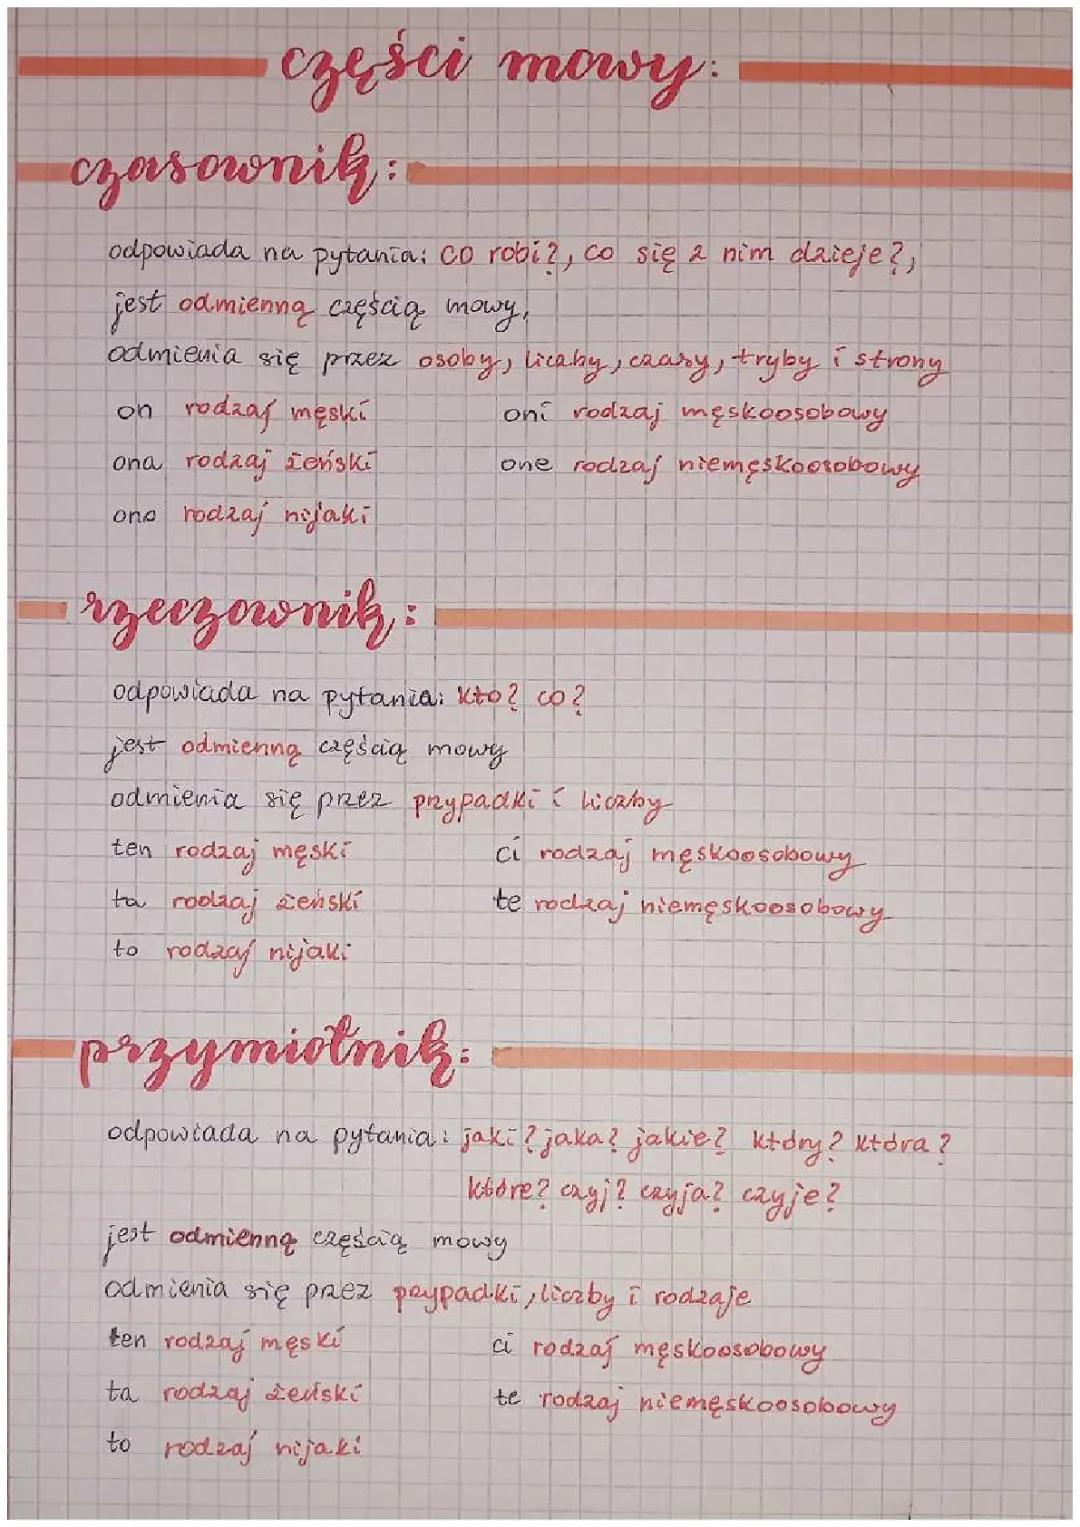 części mowy:
czasownik:
odpowiada na pytania: co robi?, co się z nim dzieje?,
jest odmienną częścią mowy,
odmienia się przez osoby, liczby, czasy, tryby i strony
on rodzaj męski oni rodzaj męskoosobowy
ona rodzaj żeński one rodzaj niemęskoosobowy
ono rodzaj nijaki
rzeczownik:
odpowiada na pytania: kto? co?
jest odmienną częścią mowy
odmienia się przez przypadki i liczby
ten rodzaj męski ci rodzaj męskoosobowy
ta rodzaj żeński te rodzaj niemęskoosobowy
to rodzaj nijaki
przymiotnik:
odpowiada na pytania: jaki? jaka? jakie? który? która?
które? czyj? czyja? czyje?
jest odmienną częścią mowy
odmienia się przez przypadki, liczby i rodzaje
ten rodzaj męski ci rodzaj męskoosobowy
ta rodzaj żeński te rodzaj niemęskoosobowy
to rodzaj nijaki